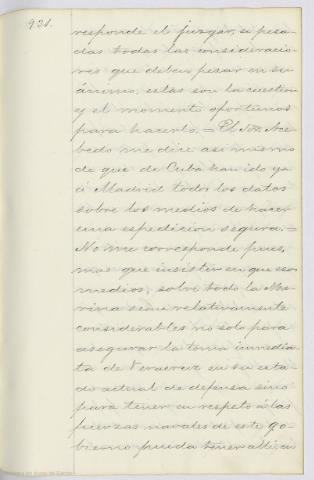 921.
responde el juzgar, si pesa-
das todas las consideracio-
nes que deben pesar en su
ánimo, estas son la cuestion
y el momento oportunos
para hacerlo. = El Sor. Ace-
bedo me dice asi mismo
de que de Cuba han ido ya
á Madrid todos los datos
sobre los medios de hacer
una espedicion segura. =
No me corresponde pues,
mas que insistir en que esos
medios, sobre todo la Ma-
rina sean relativamente
considerables no solo para
asegurar la toma inmedia-
ta de Veracruz en su esta-
do actual de defensa sino
para tener en respeto á las
fuerzas navales de este go-
bierno pueda tener alli, en